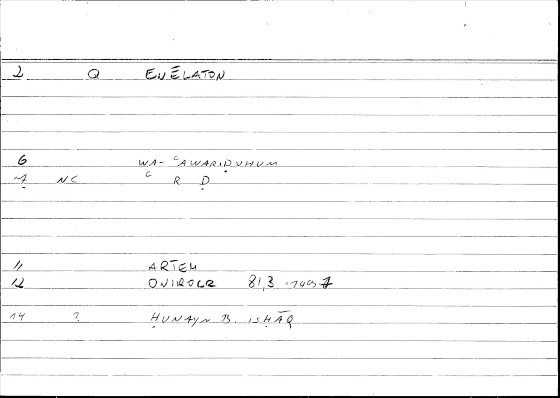 2 Q ENĒLATON
6 WA-ʿAWARIḌUHUM
7 NC ʿ R Ḍ
11 ARTEM
12 OVIROCR 81,3
14 ? ḤUNAYN B. ISḤĀQ